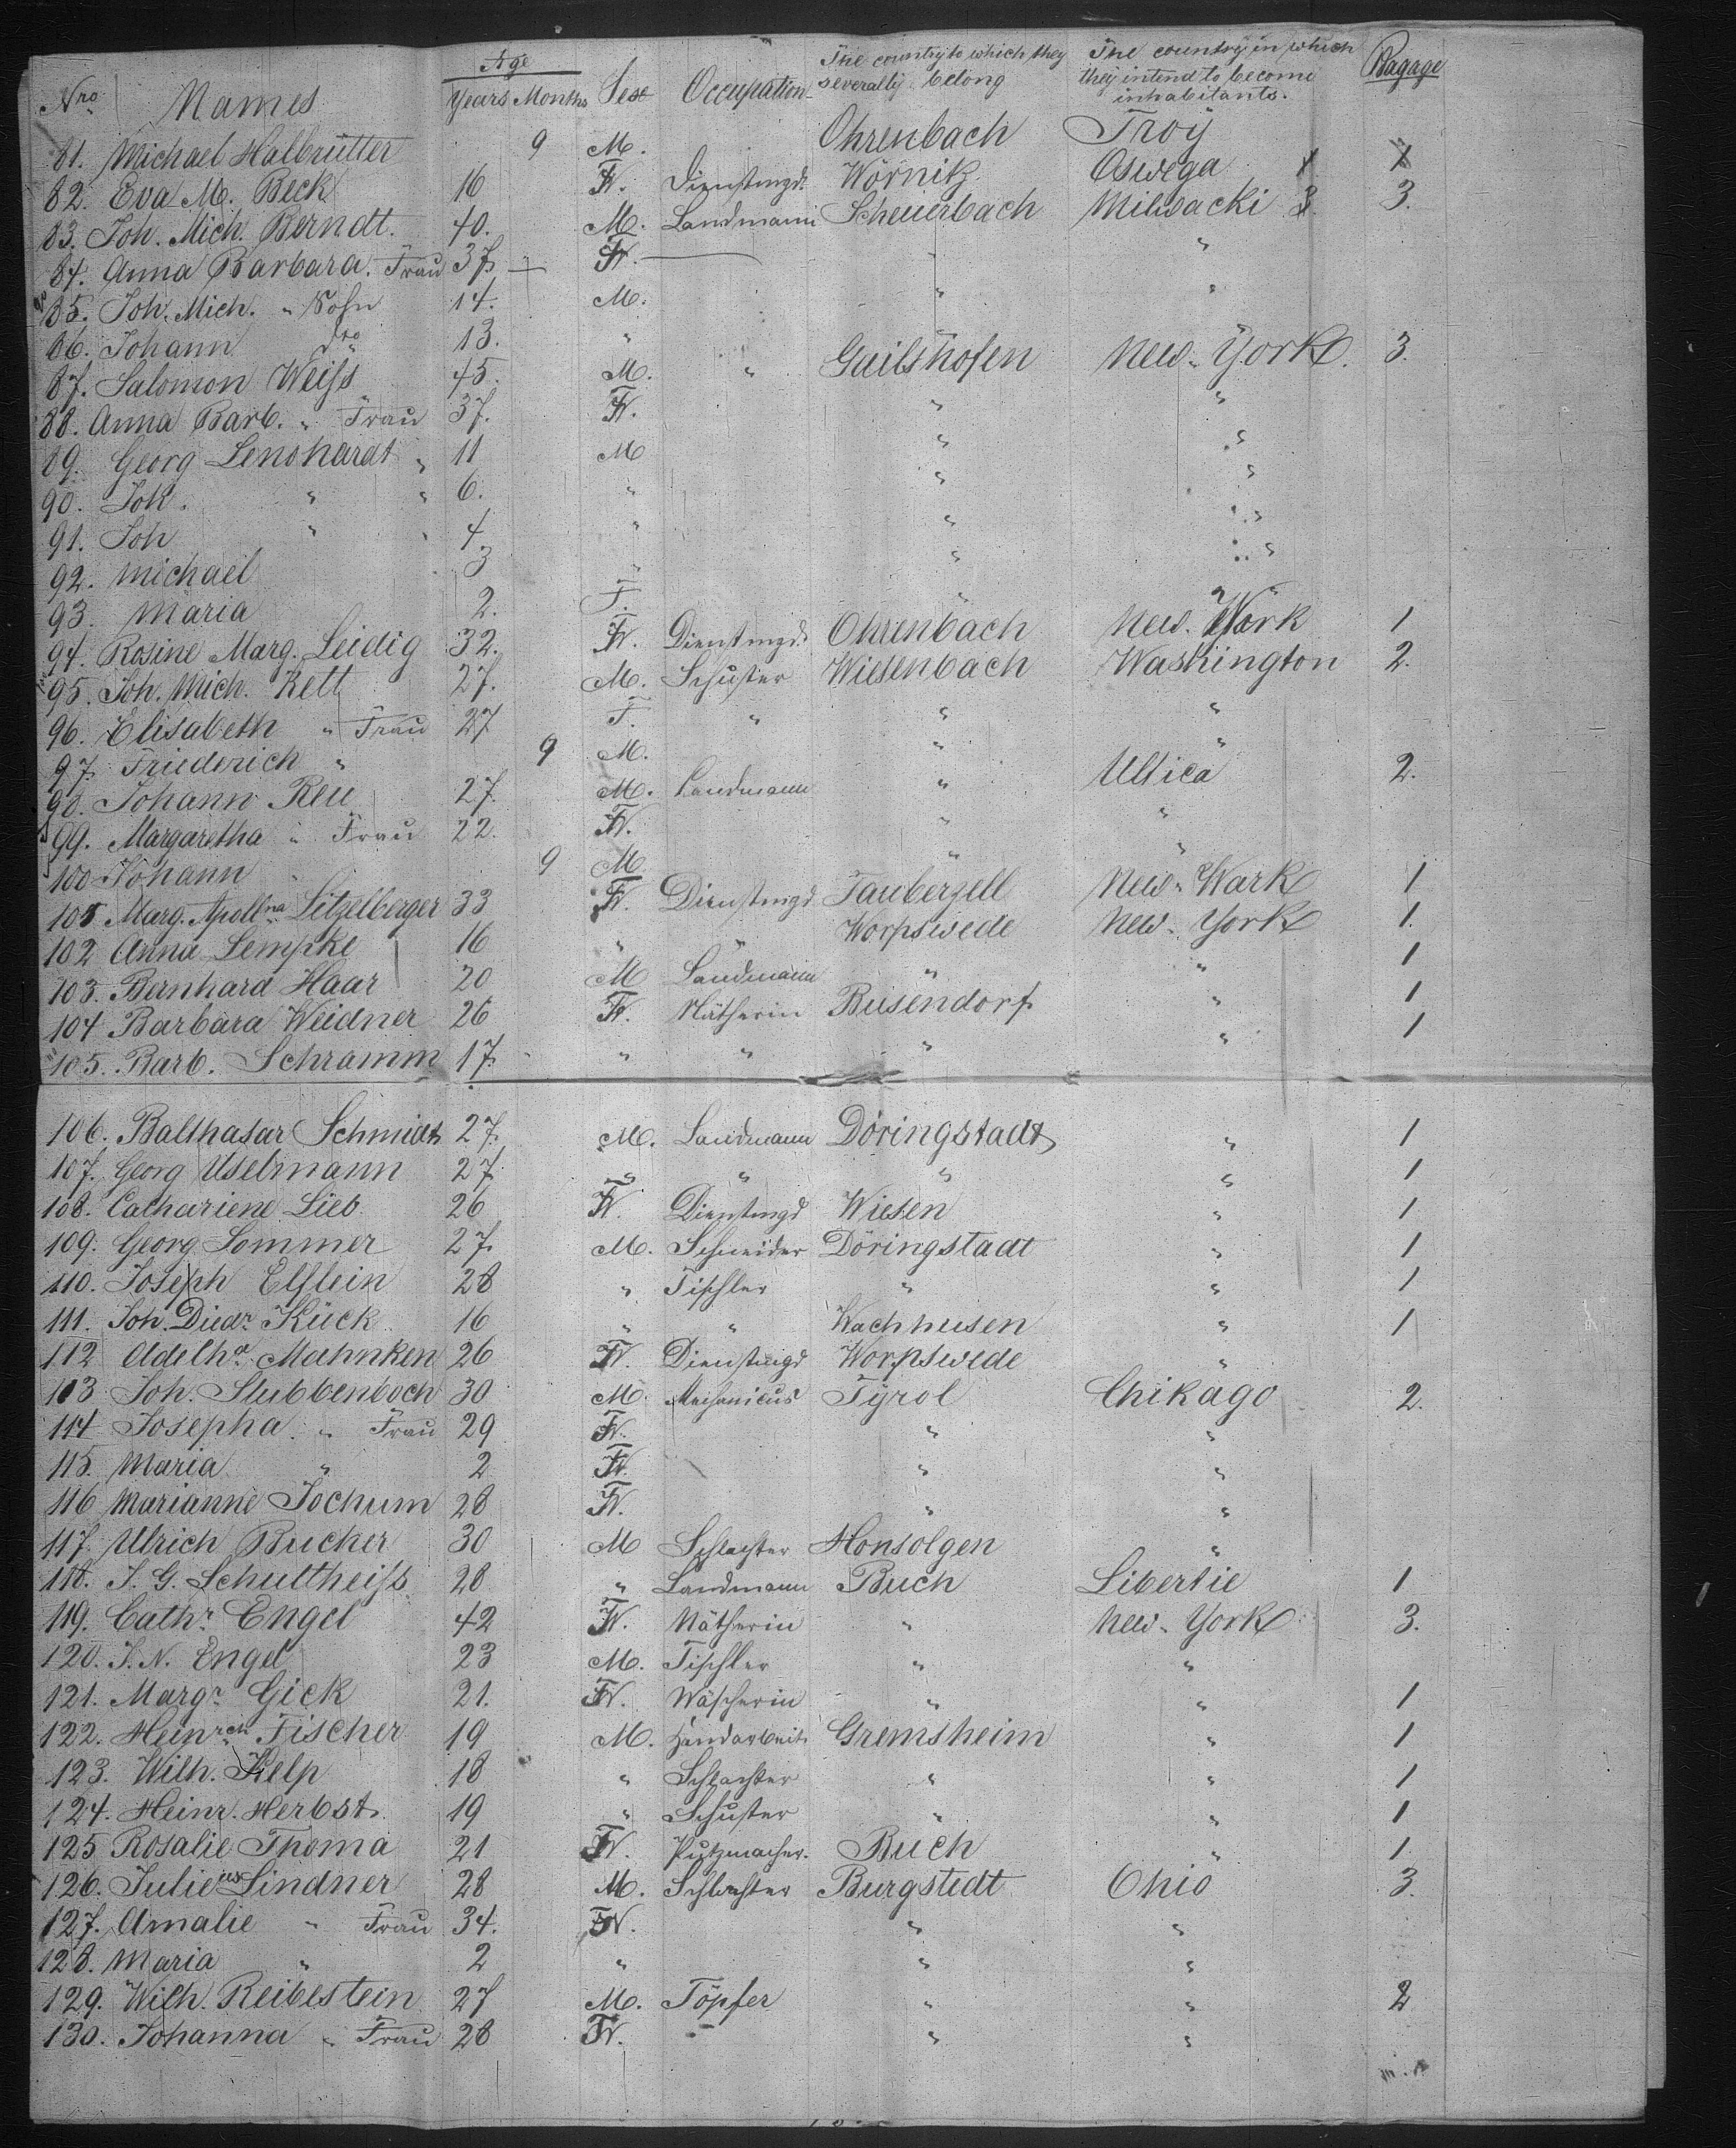 Nro Names Age Years Months Sex Occupation The country to which they severally belong The country in which they intend to become inhabitants. Bagage
81. Michael Halbrütter 9 M. Ohrenbach Troy
82. Eva M. Beck 16 F. Dienstmgd. Wörnitz Oswega 1
83. Joh. Mich. Berndt. 40. M. Landmann Scheuerbach Milwacki 3. 3.
84. Anna Barbara. Frau 37. F. " "
85. Joh. Mich. " Sohn 14. M. " "
86. Johann dto 13. "
87. Salomon Weiſs 45. M. " Gailshofen New-York. 3.
88. Anna Barb. " Frau 37. F. " "
89. Georg Lenohardt " 11 M " "
90. Joh. " " 6. " " "
91. Joh " " 4 " " "
92. Michael 3 " " "
93. Maria 2. F. " "
94. Rosine Marg. Leidig 32. F. Dienstmgd. Ohrenbach New-Wark 1
95. Joh. Mich. Kett 27. M. Schuster Wiesenbach Washington 2.
96. Elisabeth " Frau 27 F. " " "
97. Friederich " 9 M. " "
98. Johann Reu 27. M. Landmann " Utica 2.
99. Margaretha " Frau 22. F. " "
100 Johann " 9 M " "
101 Marg. Apollna Litzelberger 33 F. Dienstmgd Tauberzell New-Wark 1
102 Anna Lempke 16 " " Worpswede New-York 1.
103. Bernhard Haar 20 M Landmann " " 1
104 Barbara Weidner 26 F. Nätherin Busendorf " 1
105. Barb. Schramm 17. " " " " 1
106. Balthasar Schmidt 27. M. Landmann Döringstadt " 1
107. Georg Uselmann 27. " " " " 1
108. Cathariene Lieb 26 F. Dienstmgd Wiesen " 1
109. Georg Sommer 27. M. Schneider Döringstadt " 1
110. Joseph Elflein 28 " Tiſchler " " 1
111. Joh. Diedr. Kück 16 " " Wachhusen " 1
112 Adelh.a Mahnken 26 F. Dienstmgd Worpswede "
113 Joh. Stubbenboch 30 M. Mechanicus Tyrol Chikago 2.
114 Josepha. " Frau 29 F. " "
115. Maria " 2 F. " "
116 Marianne Jochum 28 F. " "
117. Ulrich Bucker 30 M Schlachter Honsolgen "
118. J. G. Schultheiſs 28 " Landmann Buch Libertie 1
119. Cathr. Engel 42 F. Nätherin " New-York 3.
120. J. N. Engel 23 M. Tiſchler " "
121. Margr. Gick 21. F. Wäſcherin " " 1
122. Heinrch Fischer 19 M. Handarbeit. Gremsheim " 1
123. Wilh. Kelp 18 " Schlachter " " 1
124. Heinr. Herbst. 19 " Schuster " " 1
125 Rosalie Thoma 21 F. Putzmacher. Buch " 1.
126. Julius Lindner 28 M. Schlachter Burgstedt Ohio 3.
127. Amalie " Frau 34. F. " "
128. Maria " 2 " " "
129. Wilh. Reibestein 27 M. Töpfer " " 2
130. Johanna " Frau 28 F. " "